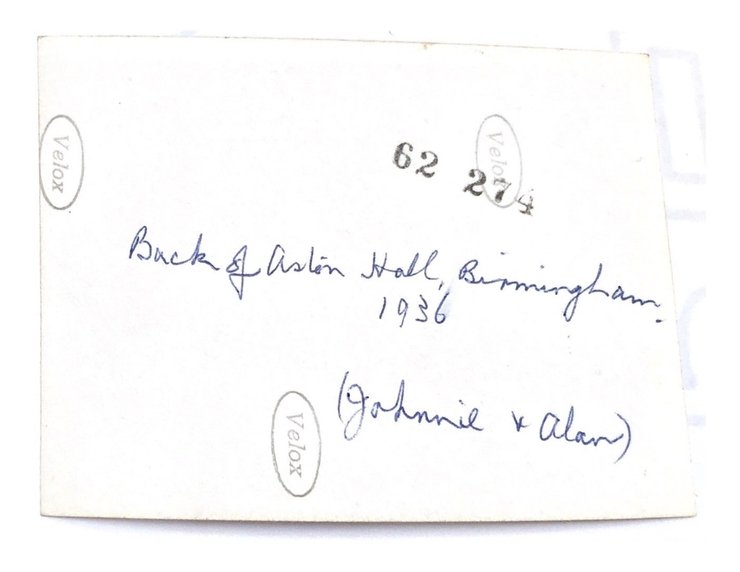 Velox
Velox
62 274
Back of Aston Hall, Birmingham.
1936
(Johnnie & Alan)
Velox